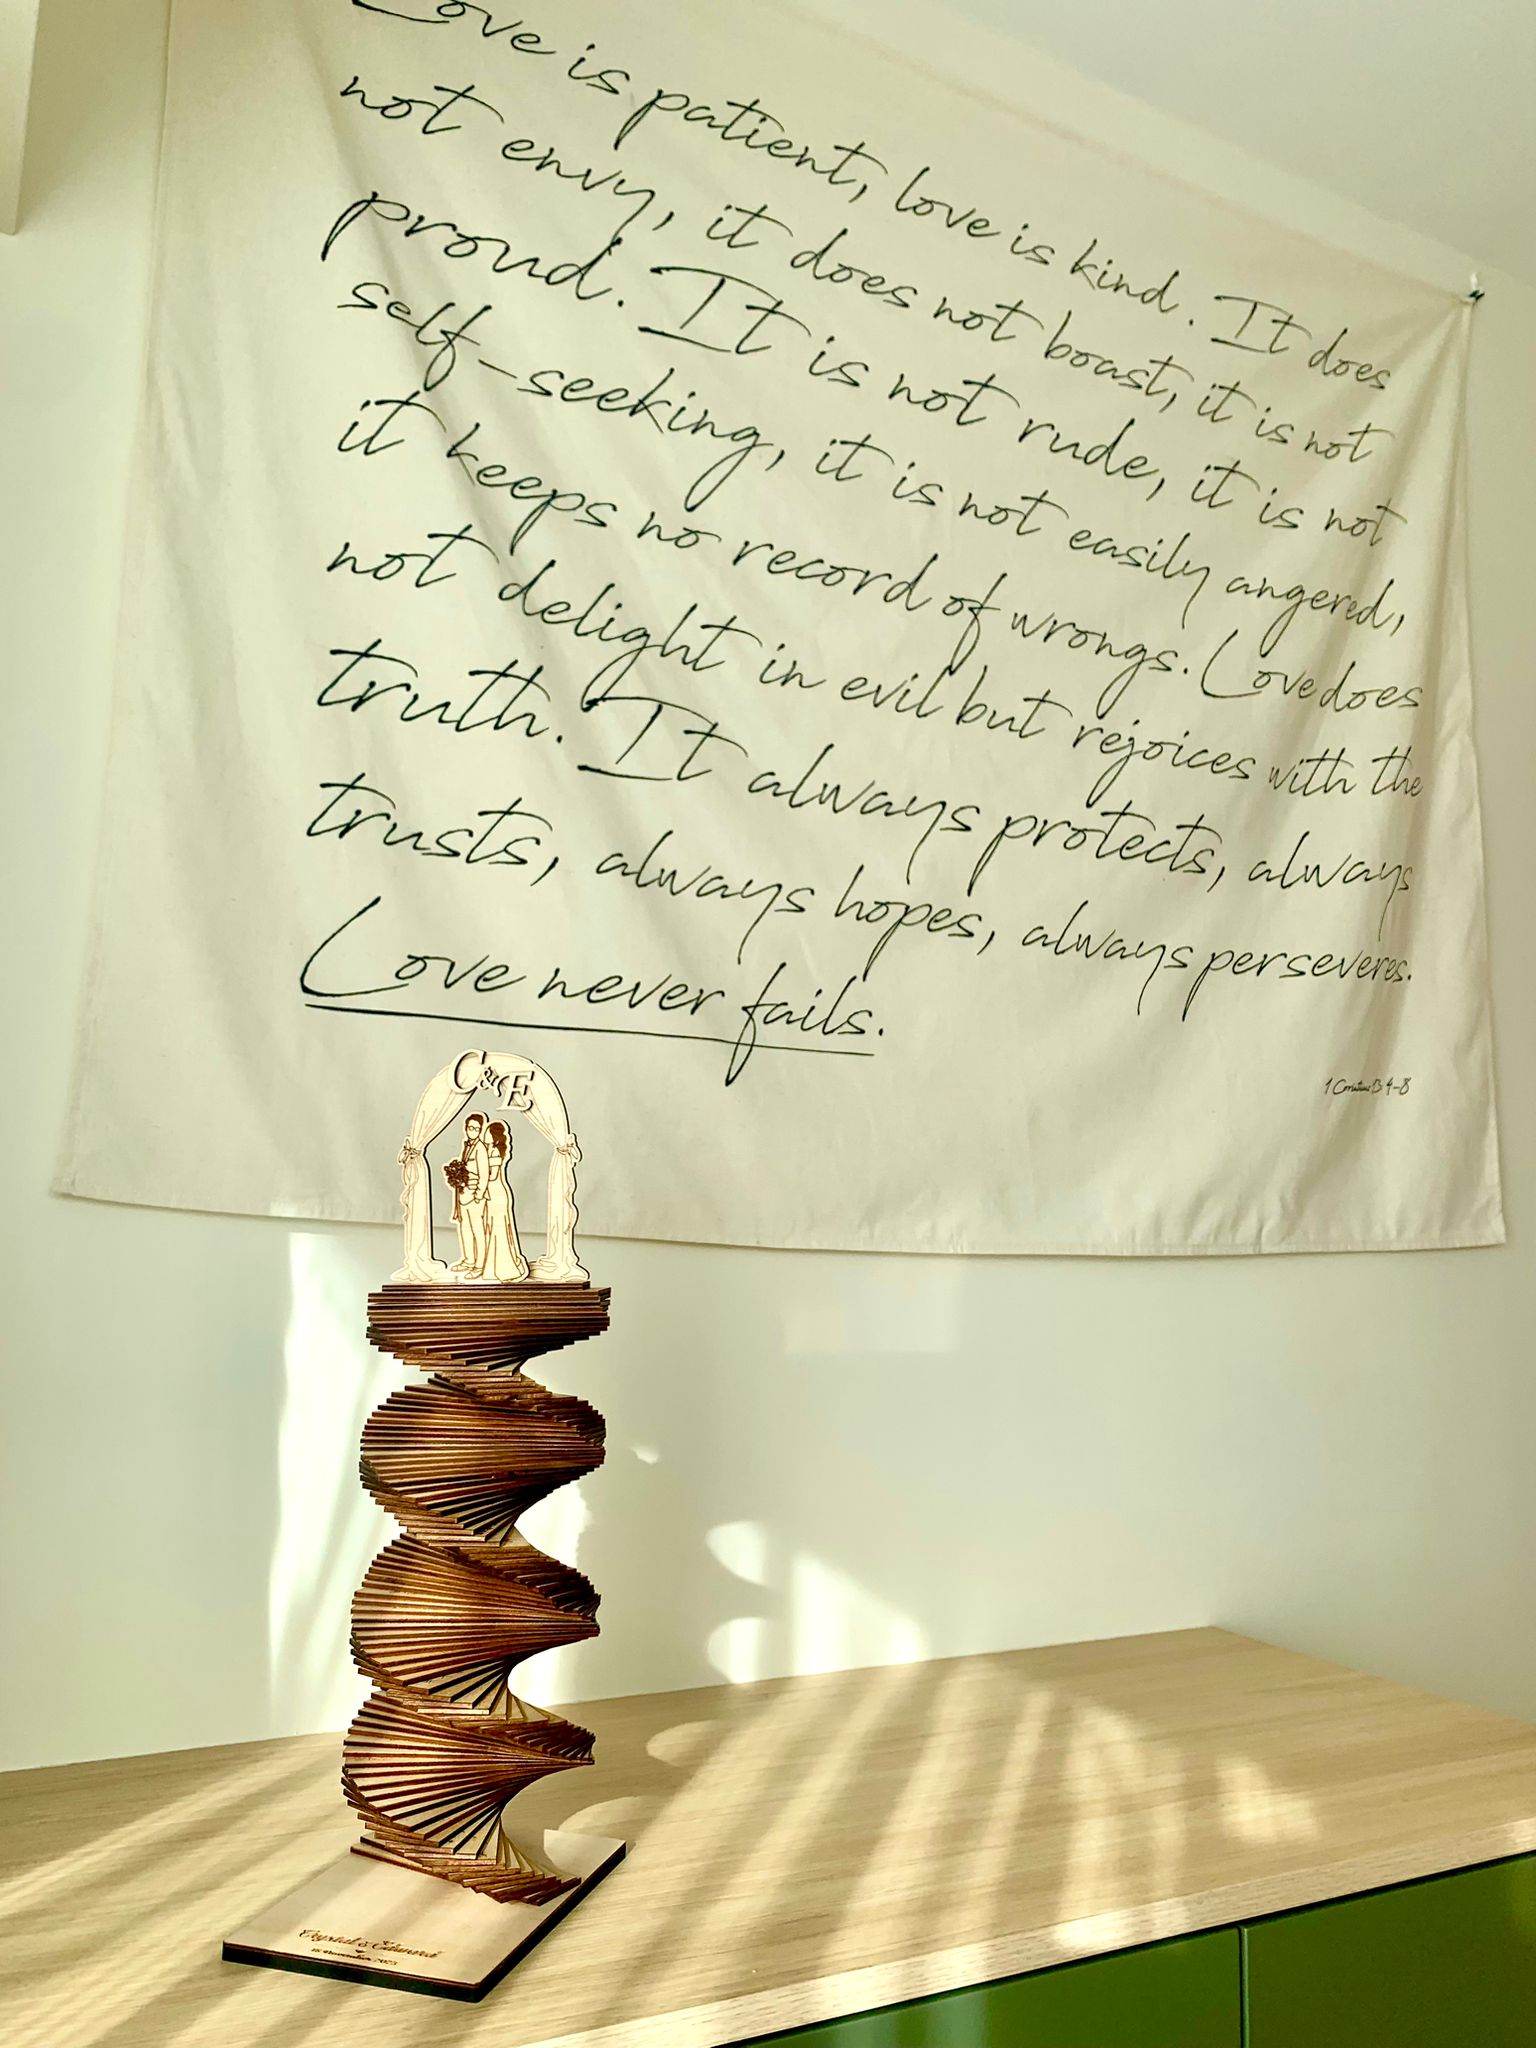 Love is patient, love is kind. It does
not envy, it does not boast, it is not
proud. It is not rude, it is not
self-seeking, it is not easily angered,
it keeps no record of wrongs. Love does
not delight in evil but rejoices with the
truth. It always protects, always
trusts, always hopes, always perseveres.
Love never fails.
4-8
C&E
Crystal & Edward
2023